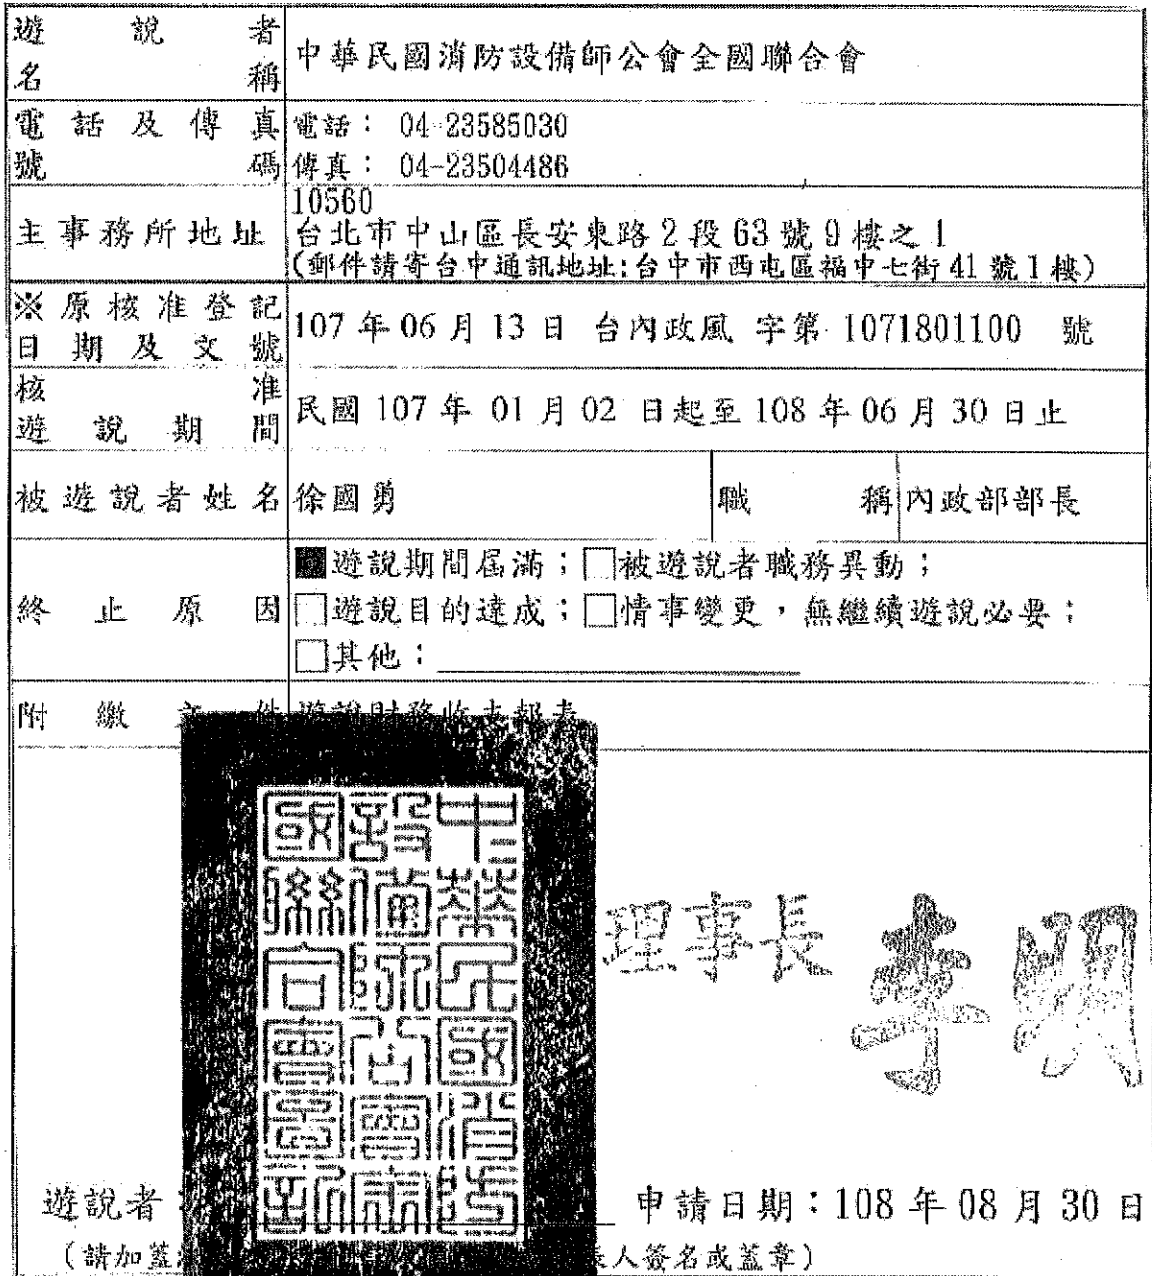 遊說者名稱 中華民國消防設備師公會全國聯合會
電話及傳真號碼 電話： 04-23585030
傳真： 04-23504486
主事務所地址 10560
台北市中山區長安東路2段63號9樓之1
(郵件請寄台中通訊地址:台中市西屯區福中七街41號1樓)
※原核准登記日期及文號 107年06月13日 台內政風 字第 1071801100 號
核准遊說期間 民國 107 年 01 月 02 日起至 108 年 06 月 30 日止
被遊說者姓名 徐國勇 職稱 內政部部長
終止原因 ■遊說期間屆滿；□被遊說者職務異動；
□遊說目的達成；□情事變更，無繼續遊說必要；
□其他：
附繳文件 遊說財務收支報表
中華民國消防
設備師公會全
國聯合會圖記
理事長 李明
遊說者
申請日期：108 年 08 月 30 日
(請加蓋
人簽名或蓋章)